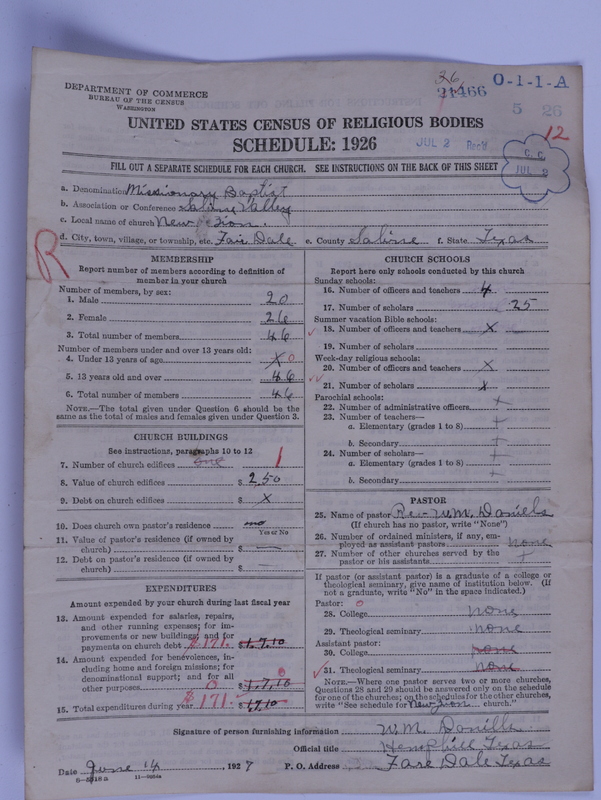 36
21466
O-1-1-A
DEPARTMENT OF COMMERCE
BUREAU OF THE CENSUS
WASHINGTON
5 26
12
UNITED STATES CENSUS OF RELIGIOUS BODIES
SCHEDULE: 1926
JUL 2 Rec'd
C. C.
JUL 2
FILL OUT A SEPARATE SCHEDULE FOR EACH CHURCH. SEE INSTRUCTIONS ON THE BACK OF THIS SHEET
a. Denomination Missionary Baptist
b. Association or Conference Sabine Valley
c. Local name of church New Zion.
d. City, town, village, or township, etc. Fair Dale e. County Sabine f. State Texas
R
MEMBERSHIP
Report number of members according to definition of
member in your church
Number of members, by sex:
1. Male 20
2. Female 26
3. Total number of members 46
Number of members under and over 13 years old:
4. Under 13 years of age X 0
5. 13 years old and over 46
6. Total number of members 46
NOTE.—The total given under Question 6 should be
same as the total of males and females given under Question 3.
CHURCH BUILDINGS
See instructions, paragraphs 10 to 12
7. Number of church edifices one 1
8. Value of church edifices $ 250
9. Debt on church edifices $ X
10. Does church own pastor's residence no
Yes or No
11. Value of pastor's residence (if owned by
church) $ —
12. Debt on pastor's residence (if owned by
church) $ —
EXPENDITURES
Amount expended by your church during last fiscal year
13. Amount expended for salaries, repairs,
and other running expenses; for im-
provements or new buildings; and for
payments on church debt $171. $1,7,10
14. Amount expended for benevolences, in-
cluding home and foreign missions; for
denominational support; and for all
other purposes 0 $1,7,10 0
15. Total expenditures during year $171. $1,710
CHURCH SCHOOLS
Report here only schools conducted by this church
Sunday schools:
16. Number of officers and teachers 4
17. Number of scholars 25
Summer vacation Bible schools:
18. Number of officers and teachers X
19. Number of scholars
Week-day religious schools:
20. Number of officers and teachers X
21. Number of scholars X
Parochial schools:
22. Number of administrative officers +
23. Number of teachers—
a. Elementary (grades 1 to 8) +
b. Secondary +
24. Number of scholars—
a. Elementary (grades 1 to 8) +
b. Secondary
PASTOR
25. Name of pastor Rev W.M. Daniels
(If church has no pastor, write "None")
26. Number of ordained ministers, if any, em-
ployed as assistant pastors none
27. Number of other churches served by the
pastor or his assistants +
If pastor (or assistant pastor) is a graduate of a college or
theological seminary, give name of institution below. (If
not a graduate, write "No" in the space indicated.)
Pastor: 0
28. College none
29. Theological seminary none
Assistant pastor:
30. College none
31. Theological seminary none
NOTE.—Where one pastor serves two or more churches,
Questions 28 and 29 should be answered only on the schedule
for one of the churches; on the schedules for the other churches,
write "See schedule for New Zion church."
Signature of person furnishing information W.M. Danills
Official title Hemphill Texas
Date June 14, 1927 P. O. Address Fare Dale Texas